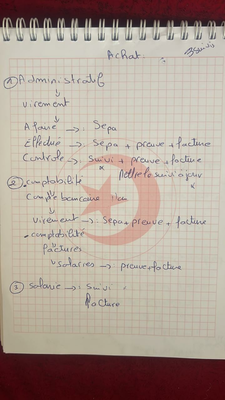 Achat :
① Administratif
↓
virement
↓
A faire → : Sepa
Effectué → : Sepa + preuve + facture
Controle → : suivi + preuve + facture
Mettre le suivi à jour
② . comptabilité
Compte bancaire :
↓
virement → : Sepa + preuve + facture
. comptabilité
factures
↳ salaires → preuve + facture
③ salaire → : suivi :
facture